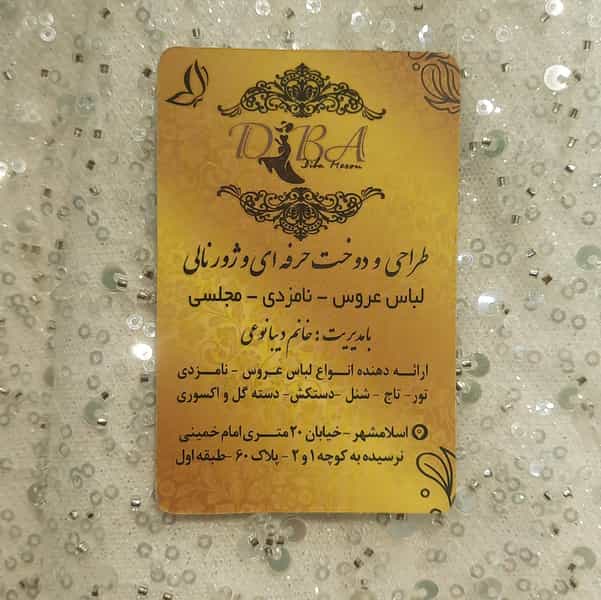 DIBA
Diba Mezon
طراحی و دوخت حرفه ای و ژورنالی
لباس عروس - نامزدی - مجلسی
بامدیریت : خانم دیبانوعی
ارائه دهنده انواع لباس عروس - نامزدی
تور- تاج - شنل -دستکش- دسته گل و اکسوری
اسلامشهر - خیابان ۲۰ متری امام خمینی
نرسیده به کوچه ۱ و ۲ - پلاک ۶۰ -طبقه اول